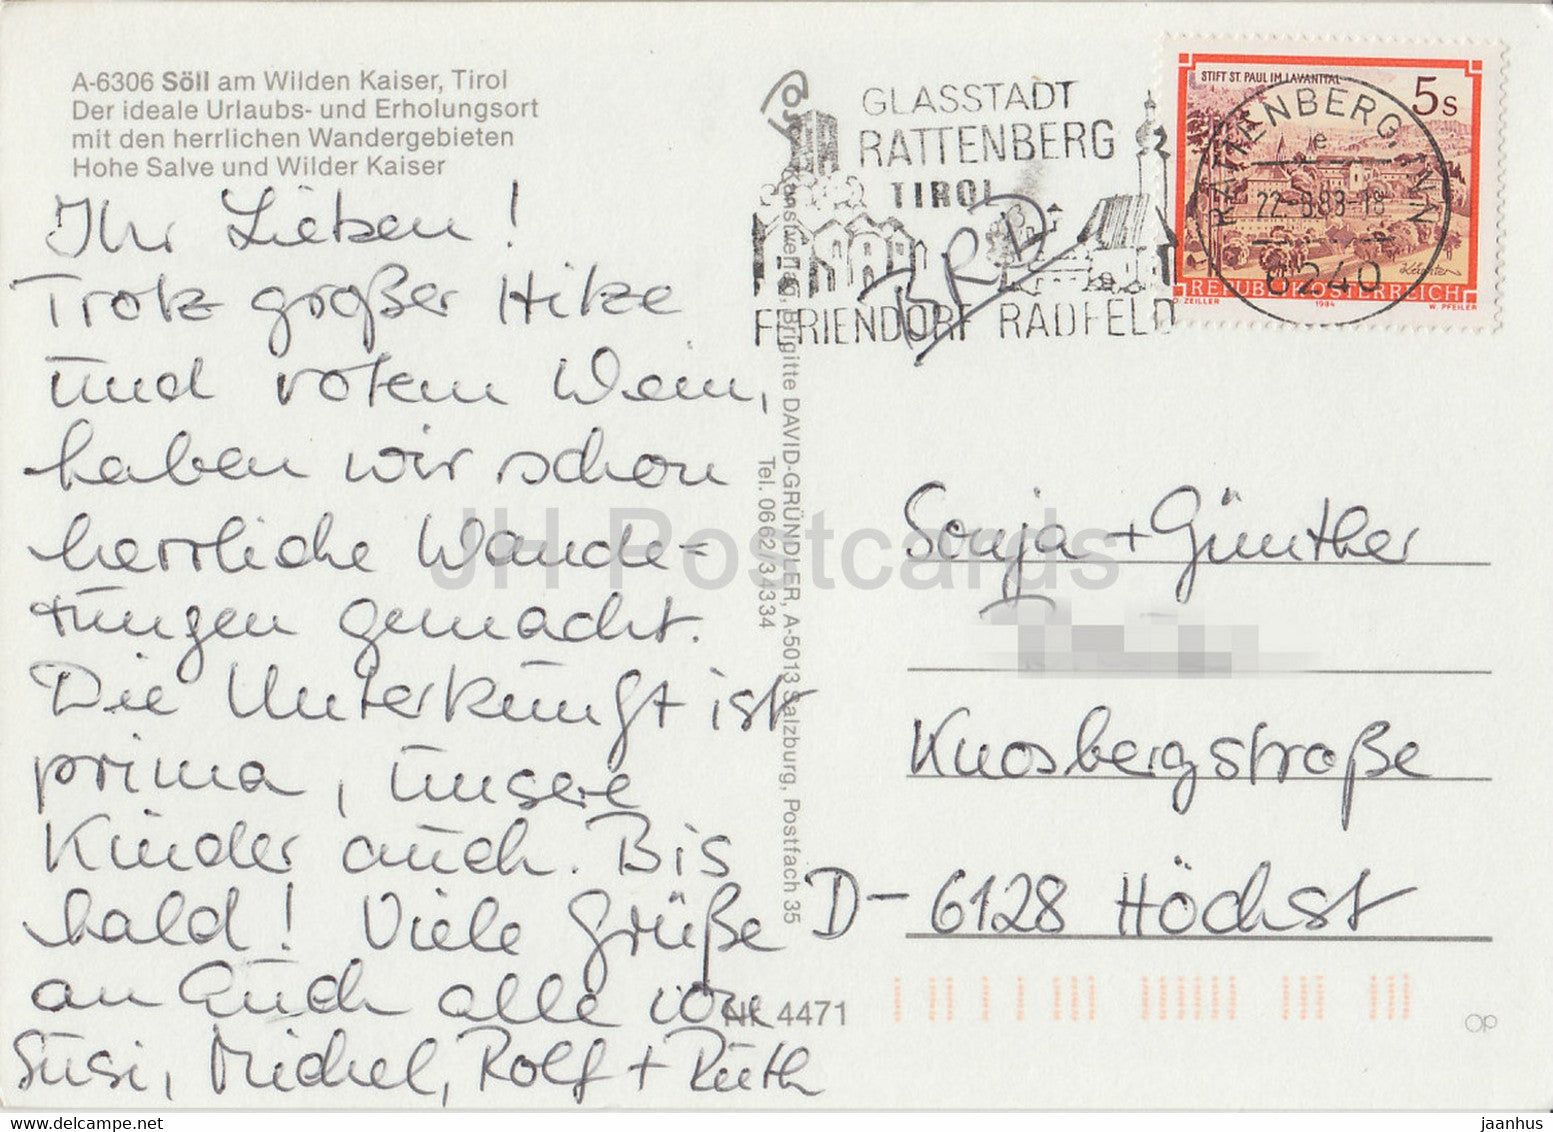 A-6306 Söll am Wilden Kaiser, Tirol
Der ideale Urlaubs- und Erholungsort
mit den herrlichen Wandergebieten
Hohe Salve und Wilder Kaiser
Ihr Lieben!
Trotz großer Hitze
und rotem Wein,
haben wir schon
herrliche Wande-
rungen gemacht.
Die Unterkunft ist
prima, unsere
Kinder auch. Bis
bald! Viele Grüße
an Euch alle von
Susi, Michel, Rolf + Ruth
Kunstverlag Brigitte DAVID-GRÜNDLER, A-5013 Salzburg, Postfach 35
Tel. 0662/34334
Nr. 4471
GLASSTADT
RATTENBERG
TIROL
FERIENDORF RADFELD
BRD
STIFT ST. PAUL IM LAVANTTAL
5s
REPUBLIK ÖSTERREICH
O. ZEILLER 1984 W. PFEILER
RATTENBERG, INN
e
22.-8.83-18
6240
Sonja + Günther
Knosbergstraße
D-6128 Höchst
JH Postcards
jaanhus